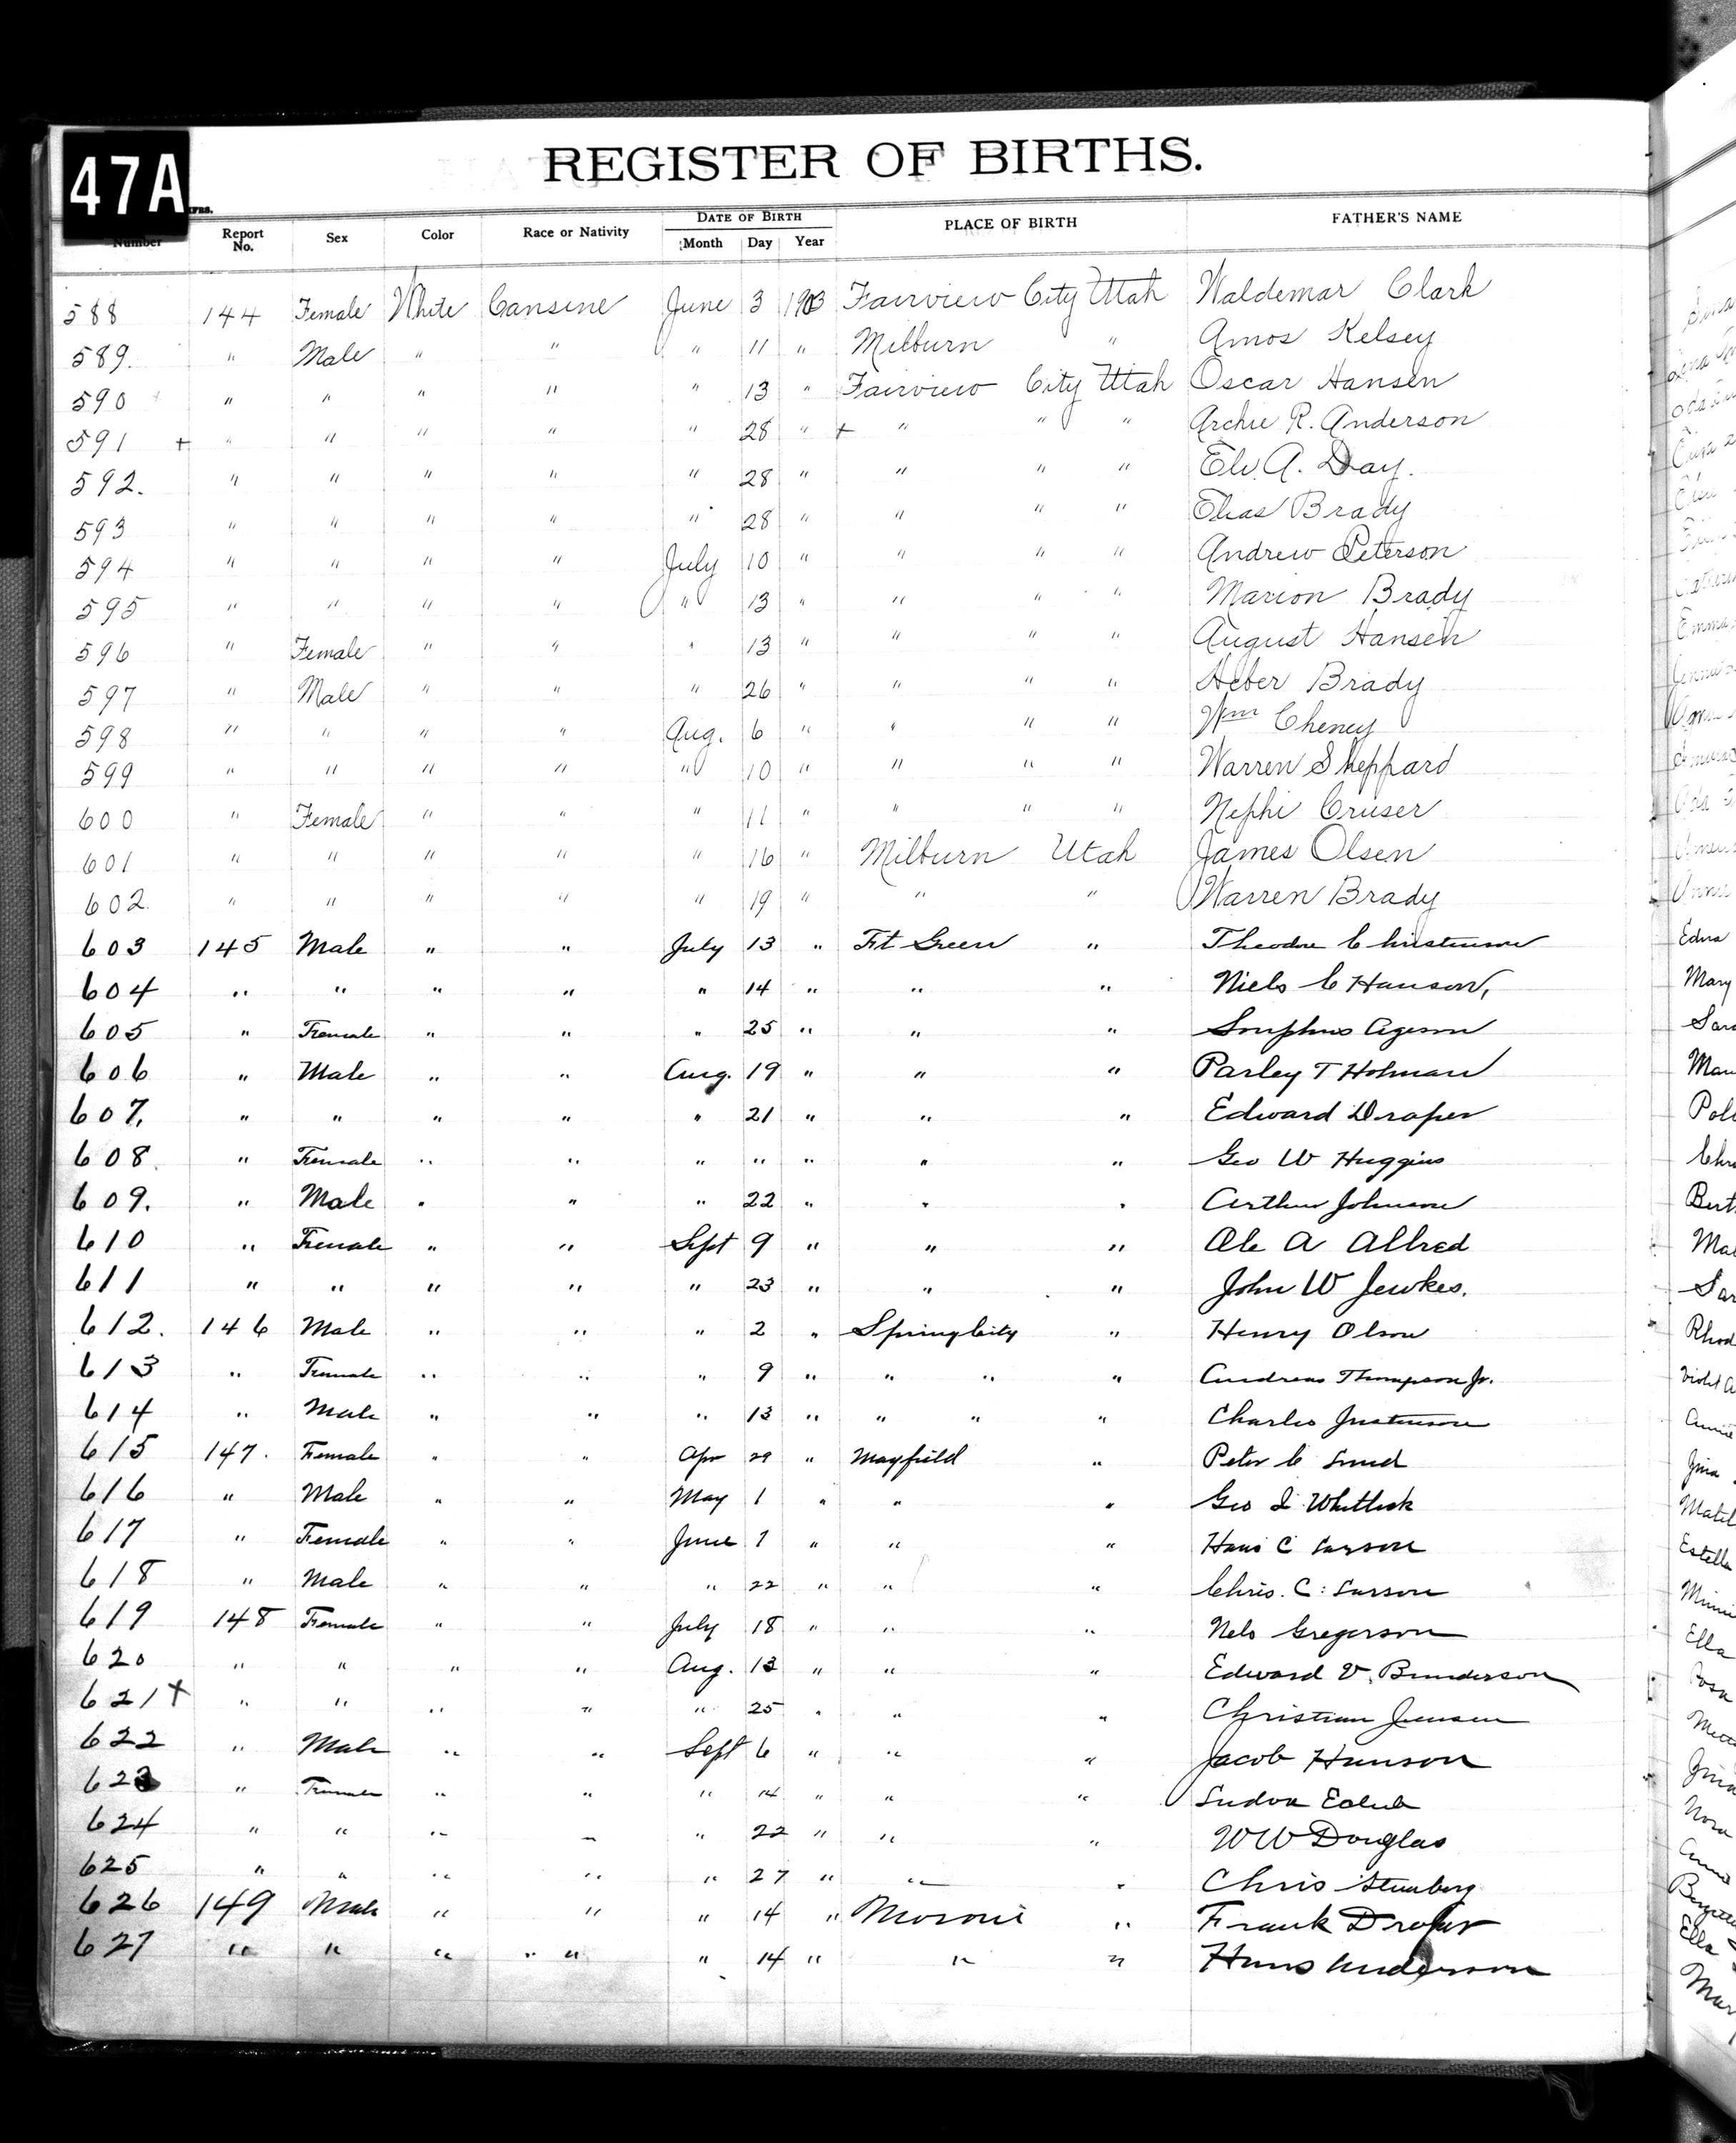 47A
REGISTER OF BIRTHS.
Number Report No. Sex Color Race or Nativity DATE OF BIRTH Month Day Year PLACE OF BIRTH FATHER'S NAME
588 144 Female White Cansine June 3 1903 Fairview City Utah Waldemar Clark
589. " Male " " " 11 " Milburn " Amos Kelsey
590 " " " " " 13 " Fairview City Utah Oscar Hansen
591 + " " " " " 28 " + " " " Archie R. Anderson
592. " " " " " 28 " " " " Eli A. Day.
593 " " " " " 28 " " " " Elias Brady
594 " " " " July 10 " " " " Andrew Peterson
595 " " " " " 13 " " " " Marion Brady
596 " Female " " " 13 " " " " August Hansen
597 " Male " " " 26 " " " " Heber Brady
598 " " " " Aug. 6 " " " " Wm Cheney
599 " " " " " 10 " " " " Warren Sheppard
600 " Female " " " 11 " " " " Nephi Cruser
601 " " " " " 16 " Milburn Utah James Olsen
602. " " " " " 19 " " " Warren Brady
603 145 Male " " July 13 " Ft Green " Theodore Christenson
604 " " " " " 14 " " " Niels C Hanson,
605 " Female " " " 25 " " "
606 " Male " " Aug. 19 " " " Parley T Holman
607. " " " " " 21 " " " Edward Draper
608. " Female " " " " " " " Geo W Huggins
609. " Male " " " 22 " " " Arthur Johnson
610 " Female " " Sept 9 " " " Ole A Allred
611 " " " " " 23 " " " John W Jewkes.
612. 146 Male " " " 2 " Spring City " Henry Olson
613 " Female " " " 9 " " " " Andreas Thompson Jr.
614 " Male " " " 13 " " " " Charles Justenson
615 147. Female " " Apr 29 " Mayfield " Peter C Lund
616 " Male " " May 1 " " " Geo I Whitlock
617 " Female " " June 1 " " " Hans C Larson
618 " Male " " " 22 " " " Chris. C. Larson
619 148 Female " " July 18 " " " Nels Gregerson
620 " " " " Aug. 13 " " " Edward V. Bunderson
621 + " " " " " 25 " " " Christian Jensen
622 " Male " " Sept 6 " " " Jacob Hanson
623 " Female " " " 14 " " "
624 " " " " " 22 " " " W W Douglas
625 " " " " " 27 " " " Chris Stenberg
626 149 Male " " " 14 " Moroni " Frank Draper
627 " " " " " " 14 " " " Hans Anderson
Edna
Mary
Bert
Rhod
Violet A
Matil
Estella
Minni
Ella
Rosa
Nora
Ella
Mar